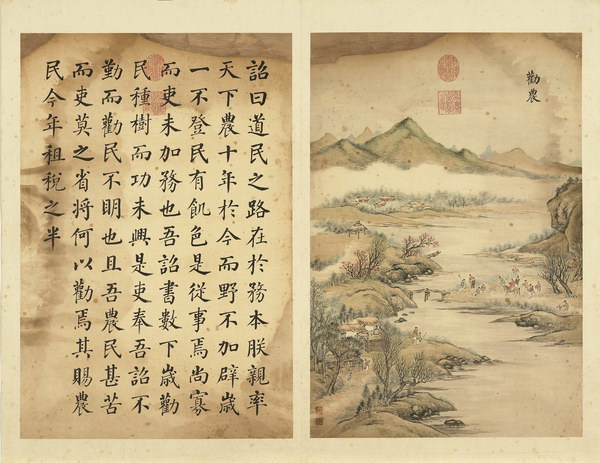 勸農
詔曰道民之路在於務本朕親率
天下農十年於今而野不加辟歲
一不登民有飢色是從事焉尚寡
而吏未加務也吾詔書數下歲勸
民種樹而功未興是吏奉吾詔不
勤而勸民不明也且吾農民甚苦
而吏莫之省將何以勸焉其賜農
民今年租稅之半